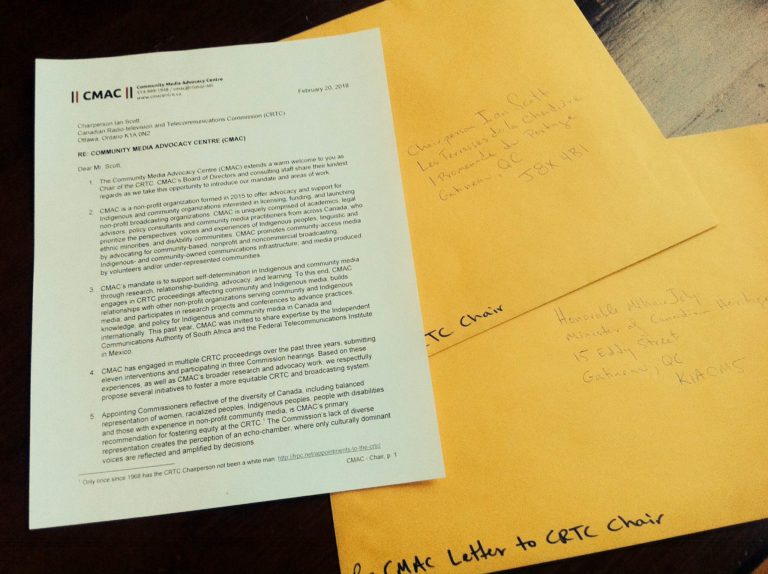 || CMAC || Community Media Advocacy Centre
www.cmacentre.ca
February 20, 2018
Chairperson Ian Scott
Canadian Radio-television and Telecommunications Commission (CRTC)
Ottawa, Ontario K1A 0N2
RE: COMMUNITY MEDIA ADVOCACY CENTRE (CMAC)
Dear Mr. Scott,
1. The Community Media Advocacy Centre (CMAC) extends a warm welcome to you as
Chair of the CRTC. CMAC's Board of Directors and consulting staff share their kindest
regards as we take this opportunity to introduce our mandate and areas of work.
2. CMAC is a non-profit organization formed in 2015 to offer advocacy and support for
Indigenous and community organizations interested in licensing, funding, and launching
non-profit broadcasting organizations. CMAC is uniquely comprised of academics, legal
advisors, policy consultants and community media practitioners from across Canada, who
prioritize the perspectives, voices and experiences of Indigenous peoples, linguistic and
ethnic minorities, and disAbility communities. CMAC promotes community-access media
by advocating for community-based, nonprofit and noncommercial broadcasting,
Indigenous- and community-owned communications infrastructure, and media produced
by volunteers and/or under-represented communities.
3. CMAC's mandate is to support self-determination in Indigenous and community media
through research, relationship-building, advocacy, and learning. To this end, CMAC
engages in CRTC proceedings affecting community and Indigenous media, builds
relationships with other non-profit organizations serving community and Indigenous
media, and participates in research projects and conferences to advance practices,
knowledge, and policy for Indigenous and community media in Canada and
internationally. This past year, CMAC was invited to share expertise by the Independent
Communications Authority of South Africa and the Federal Telecommunications Institute
in Mexico.
4. CMAC has engaged in multiple CRTC proceedings over the past three years, submitting
eleven interventions and participating in three Commission hearings. Based on these
experiences, as well as CMAC's broader research and advocacy work, we respectfully
propose several initiatives to foster a more equitable CRTC and broadcasting system.
5. Appointing Commissioners reflective of the diversity of Canada, including balanced
representation of women, racialized peoples, Indigenous peoples, people with disabilities
and those with experience in non-profit community media, is CMAC's primary
recommendation for fostering equity at the CRTC.¹ The Commission's lack of diverse
representation creates the perception of an echo-chamber, where only culturally dominant
voices are reflected and amplified by decisions.
¹ Only once since 1968 has the CRTC Chairperson not been a white man: http://frpc.net/appointments-to-the-crtc/
CMAC - Chair, p. 1
Chairperson Ian Scott
Les Terrasses de la Chaudière
1 Promenade du Portage
Gatineau, QC
J8X 4B1
CRTC Chair
Honorable Mélanie Joly
Minister of Canadian Heritage
15 Eddy Street
Gatineau, QC
K1A 0M5
CMAC Letter to CRTC Chair